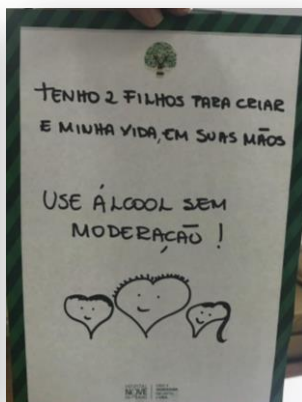 TENHO 2 FILHOS PARA CRIAR
E MINHA VIDA, EM SUAS MÃOS
USE ÁLCOOL SEM
MODERAÇÃO!
HOSPITAL
NOVE